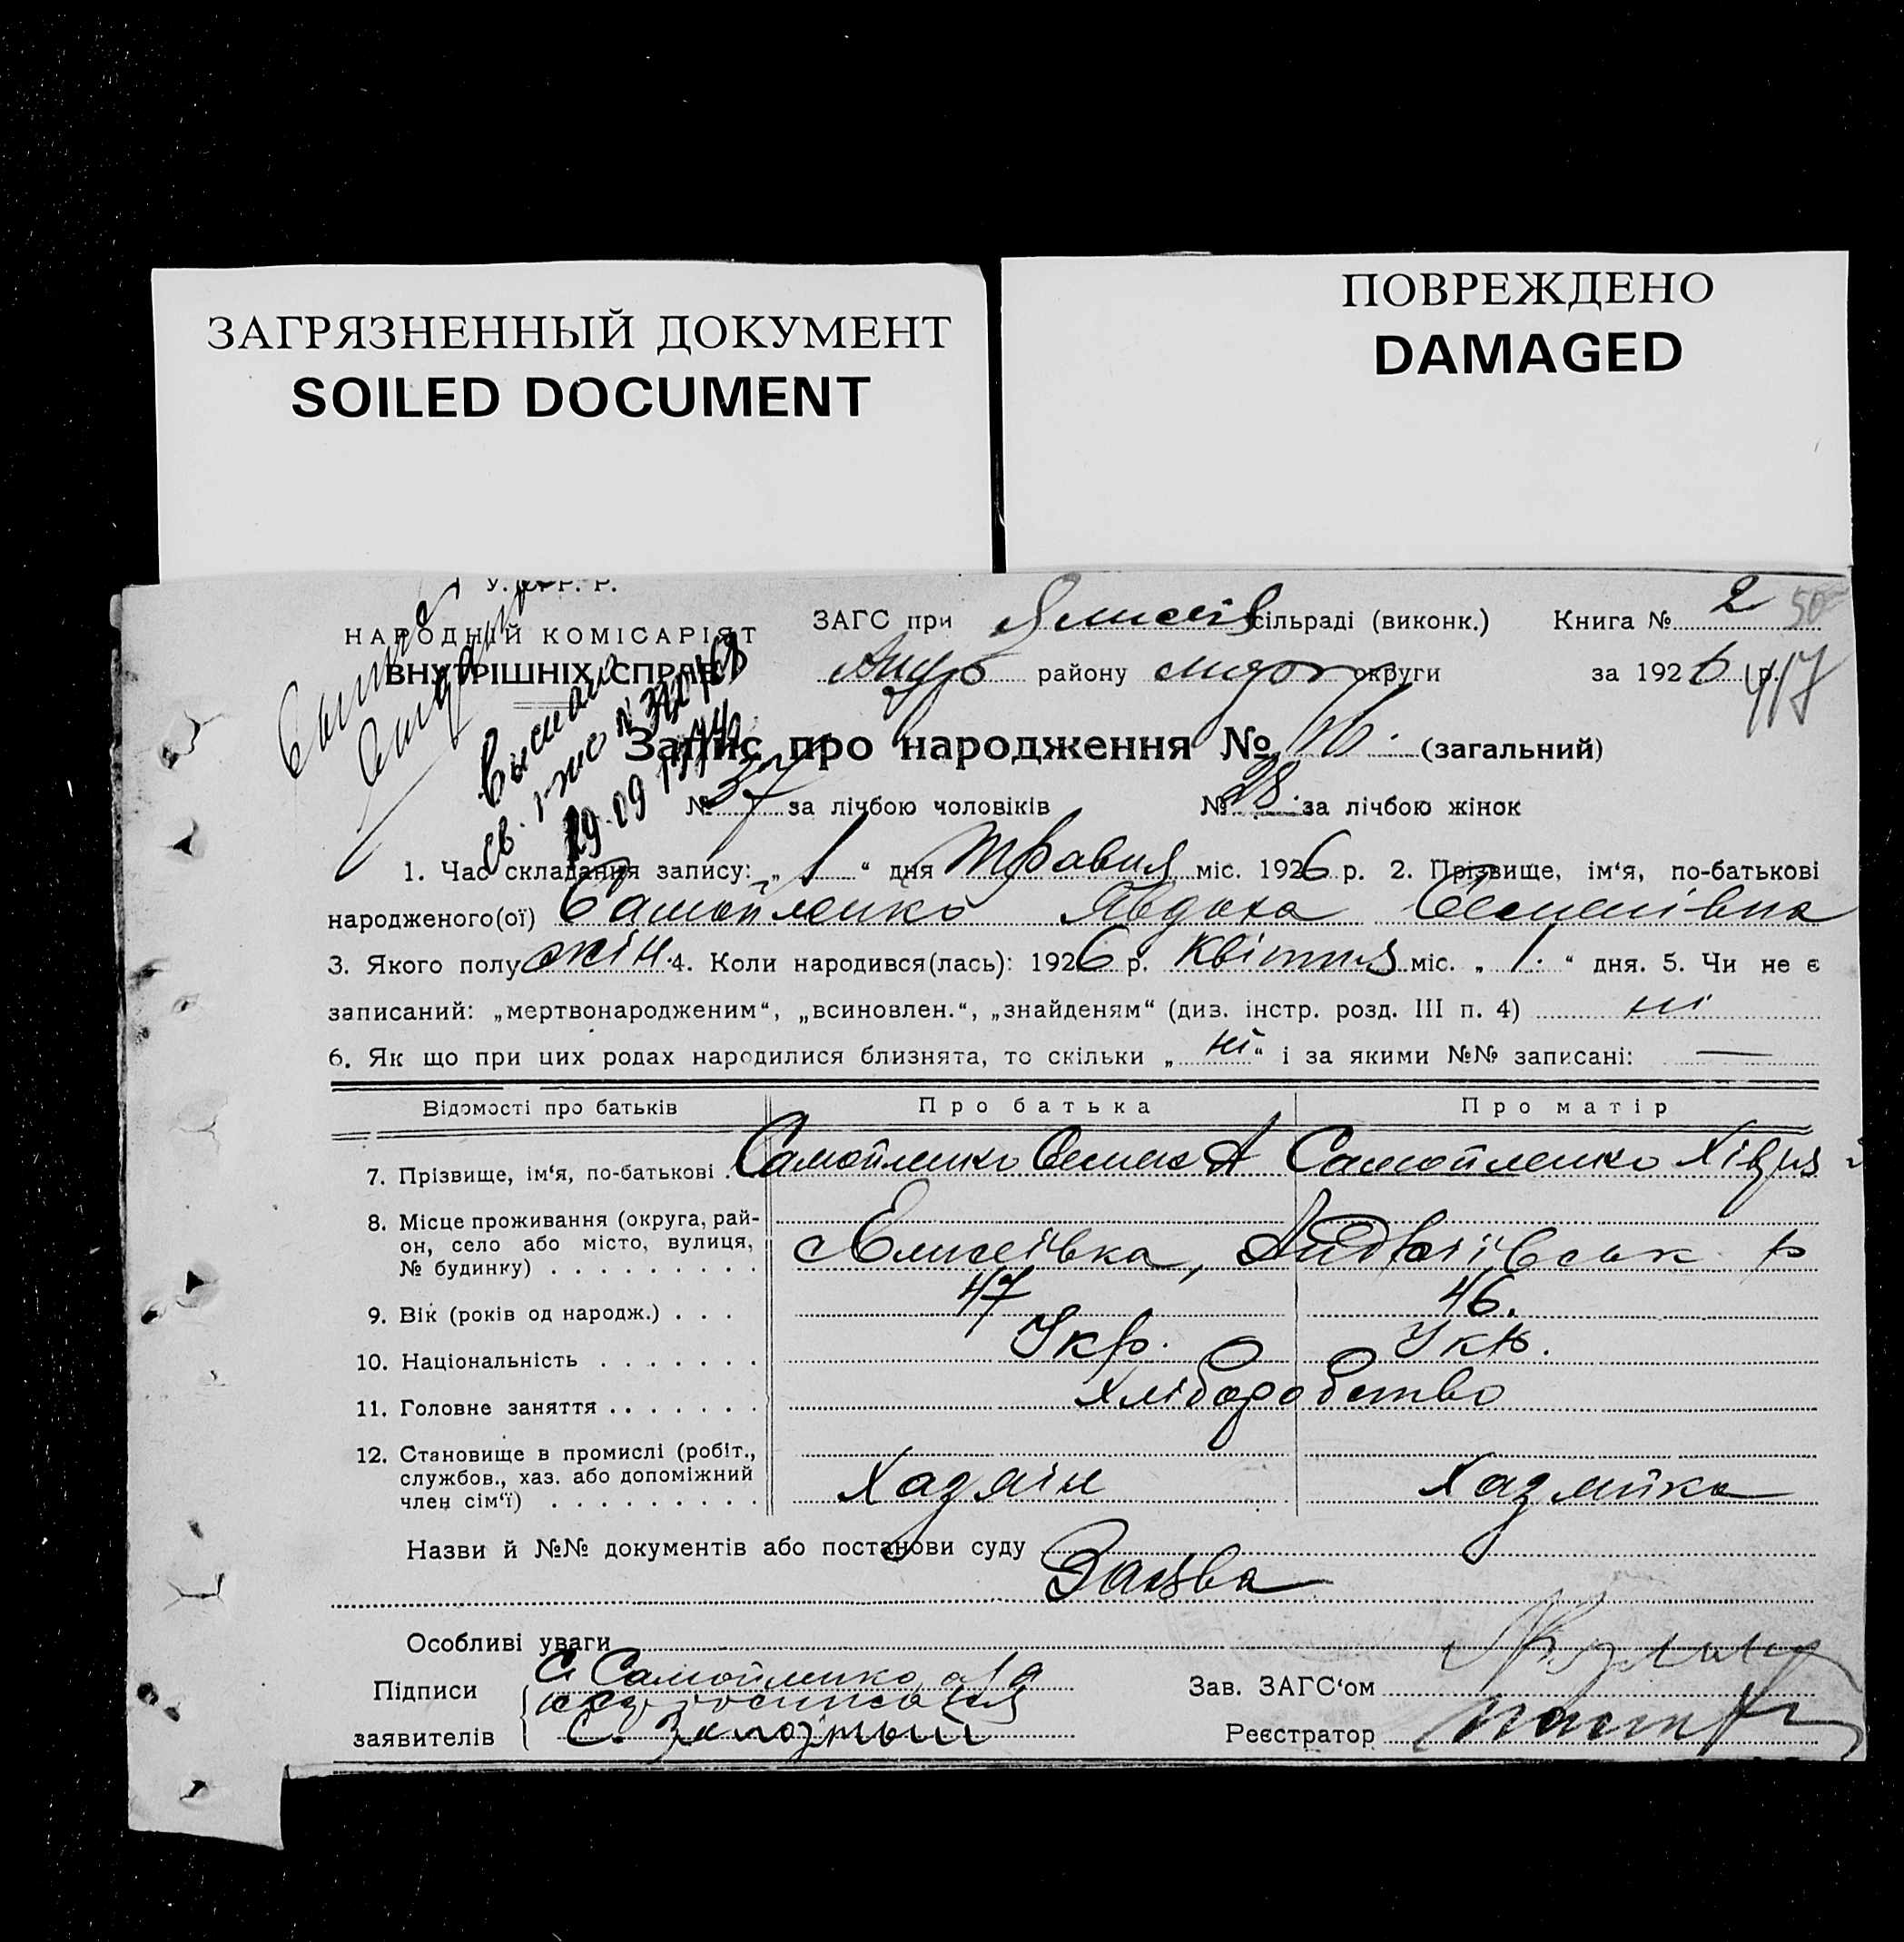 ЗАГРЯЗНЕННЫЙ ДОКУМЕНТ
SOILED DOCUMENT
ПОВРЕЖДЕНО
DAMAGED
НАРОДНИЙ КОМІСАРІЯТ
ВНУТРІШНІХ СПРАВ
ЗАГС при сільраді (виконк.) Книга № 2
району округи за 1926 р.
417
Запис про народження № (загальний)
№ 37 за лічбою чоловіків № 28 за лічбою жінок
1. Час складання запису: „ 1 “ дня травня міс. 1926 р. 2. Прізвище, ім‘я, по-батькові
народженого(ої) Самойленко Явдоха Семенівна
3. Якого полу жін. 4. Коли народився(лась): 1926 р. квітня міс. „ 1. “ дня. 5. Чи не є
записаний: „мертвонародженим“, „всиновлен.“, „знайденям“ (див. інстр. розд. III п. 4) ні
6. Як що при цих родах народилися близнята, то скільки „ ні “ і за якими №№ записані: —
Відомості про батьків Про батька Про матір
7. Прізвище, ім‘я, по-батькові . . Самойленко Семен А Самойленко Хівря
8. Місце проживання (округа, рай-
он, село або місто, вулиця,
№ будинку) . . . . . . . . . Елисеївка, Андріївськ р
9. Вік (років од народж.) . . . 47 46.
10. Національність . . . . . . . Укр. Укр.
11. Головне заняття . . . . . . . Хліборобство
12. Становище в промислі (робіт.,
службов., хаз. або допоміжний
член сім‘ї) . . . . . . . . . Хазяїн Хазяйка
Назви й №№ документів або постанови суду
Заява
Особливі уваги
Підписи С. Самойленко Зав. ЗАГС‘ом
заявителів Реєстратор